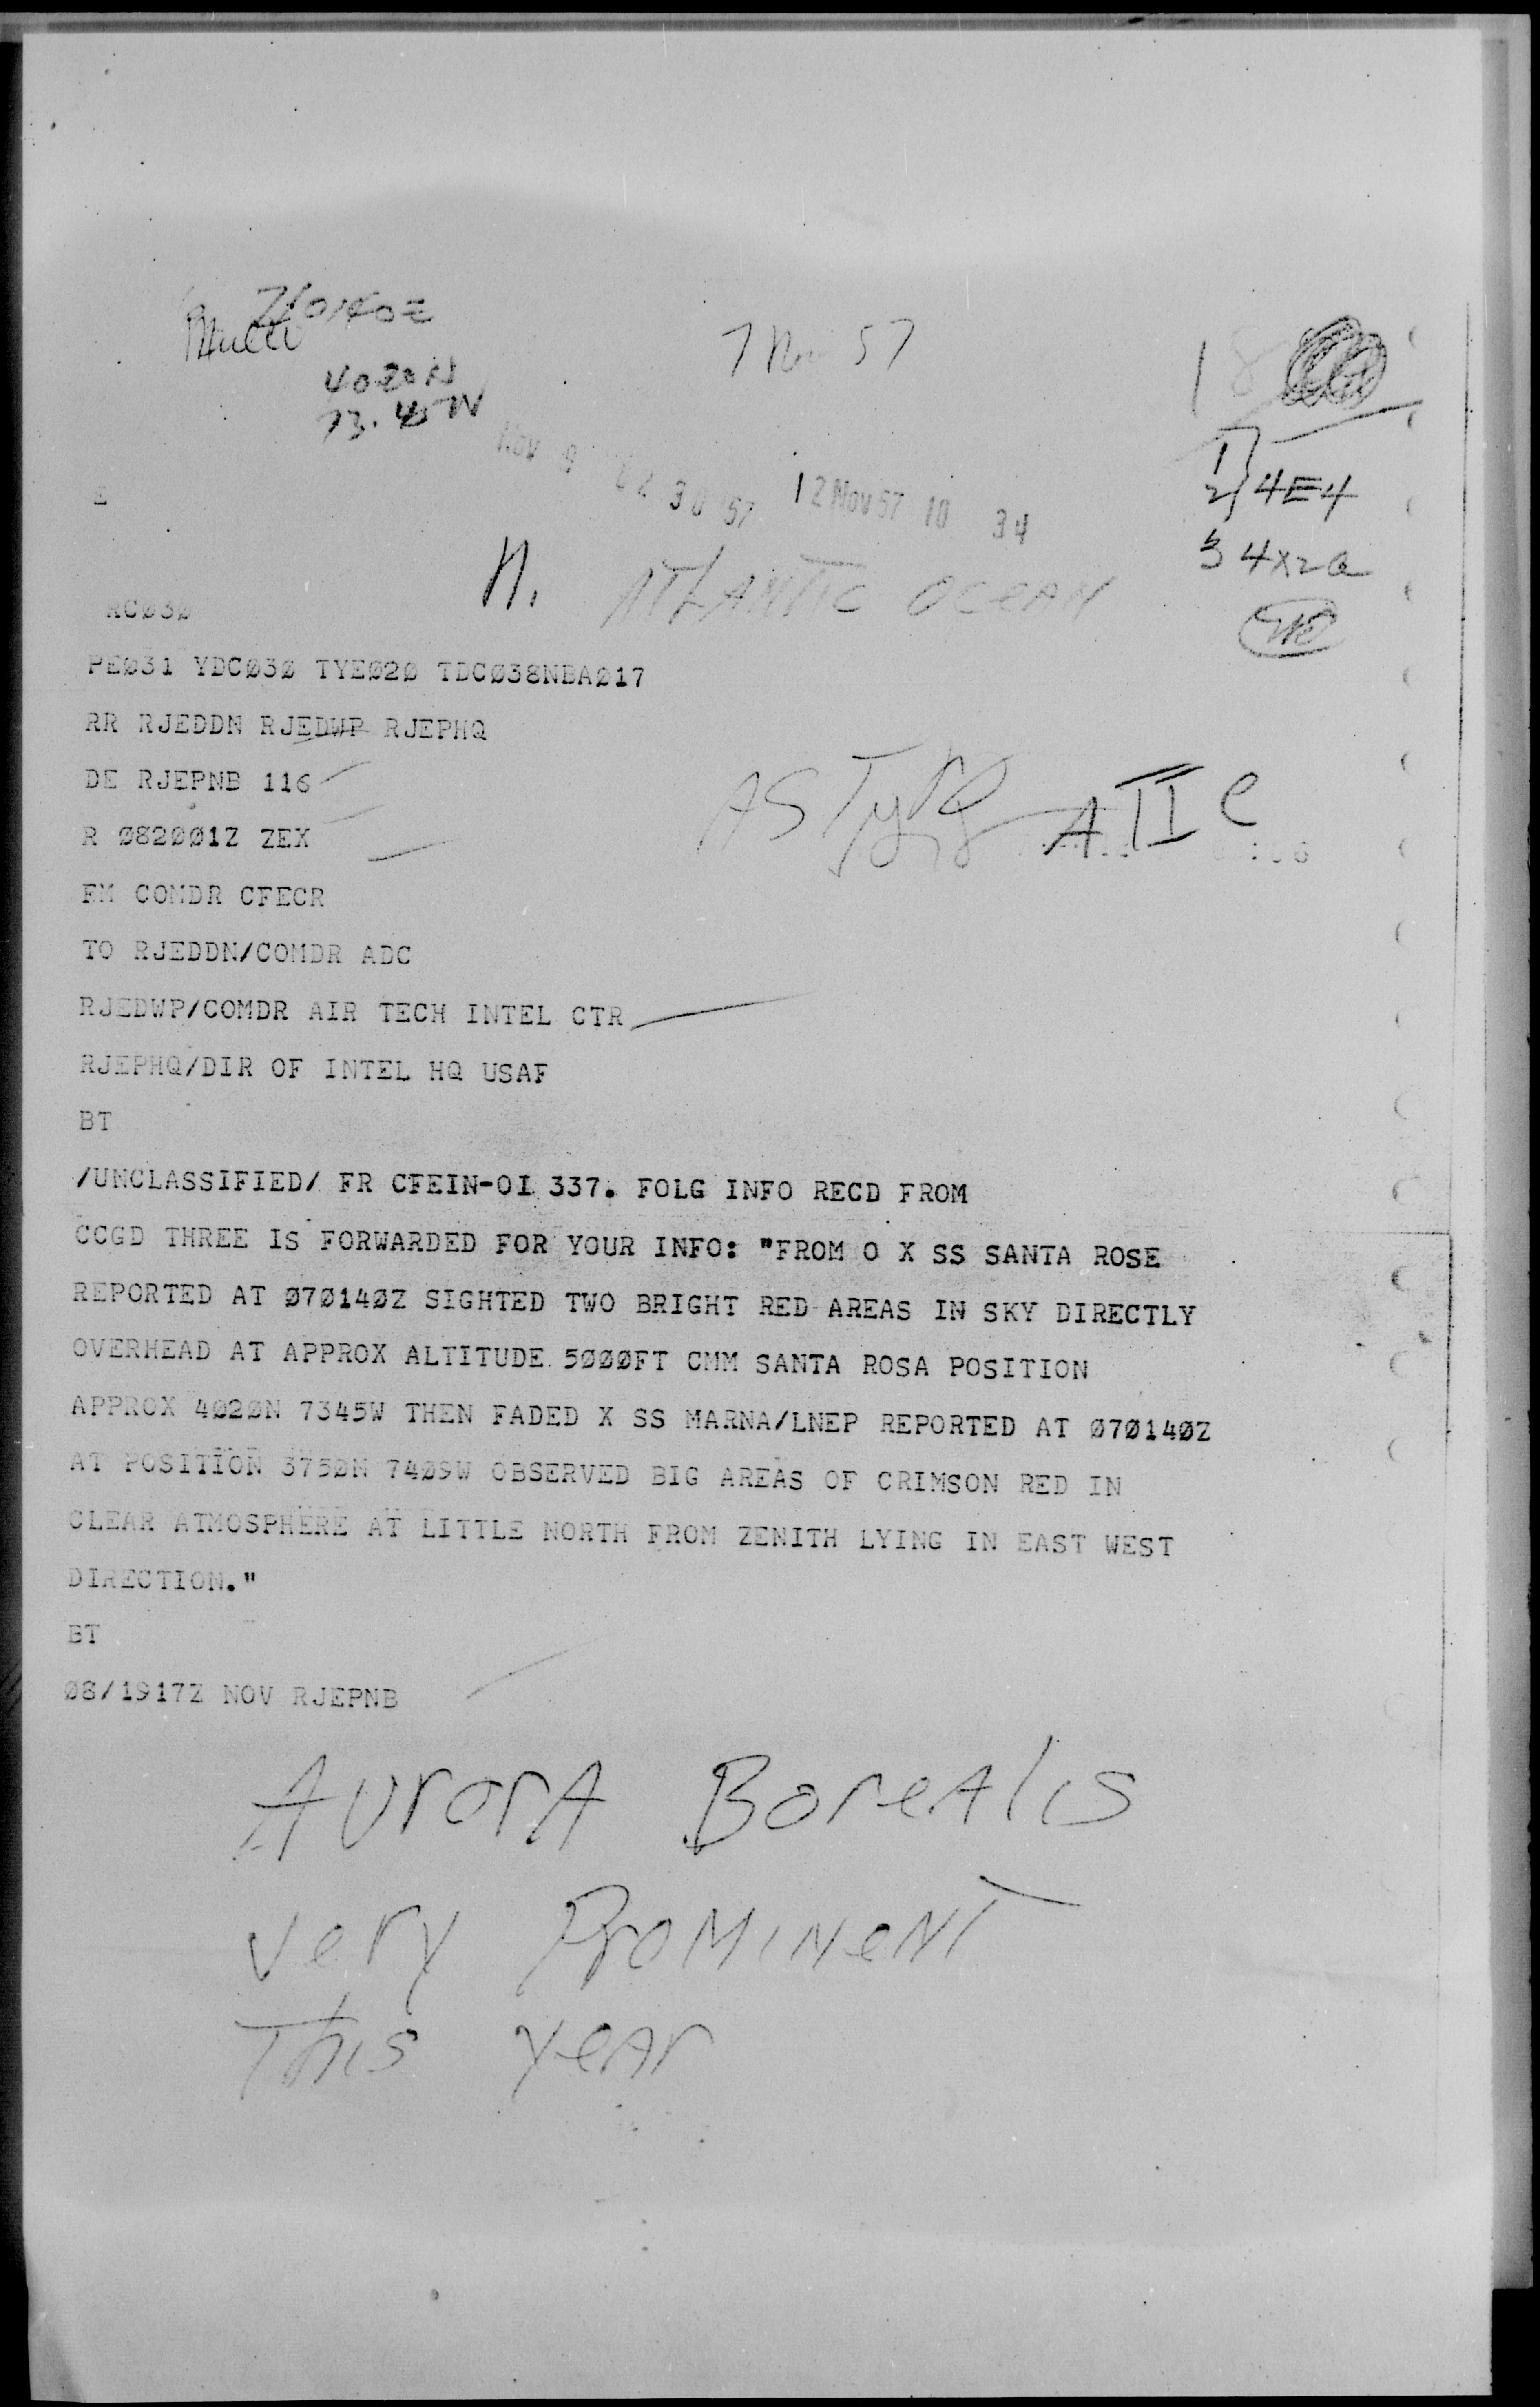 7/0140Z
Multi
40 20 N
73. 45 W
7 Nov 57
18
NOV 9 22 30 '57
12 NOV 57 10 34
17
2) 4E4
3 4X2a
N. ATLANTIC OCEAN
RCØ3Ø
PEØ31 YDCØ3Ø TYEØ2Ø TDCØ38NBAØ17
RR RJEDDN RJEDWP RJEPHQ
DE RJEPNB 116
R Ø82ØØ1Z ZEX
ASTyRg ATIC
FM COMDR CFECR
TO RJEDDN/COMDR ADC
RJEDWP/COMDR AIR TECH INTEL CTR
RJEPHQ/DIR OF INTEL HQ USAF
BT
/UNCLASSIFIED/ FR CFEIN-OI 337. FOLG INFO RECD FROM
CCGD THREE IS FORWARDED FOR YOUR INFO: "FROM O X SS SANTA ROSE
REPORTED AT Ø7Ø14ØZ SIGHTED TWO BRIGHT RED AREAS IN SKY DIRECTLY
OVERHEAD AT APPROX ALTITUDE 5ØØØFT CMM SANTA ROSA POSITION
APPROX 4Ø2ØN 7345W THEN FADED X SS MARNA/LNEP REPORTED AT Ø7Ø14ØZ
AT POSITION 375ØN 74Ø9W OBSERVED BIG AREAS OF CRIMSON RED IN
CLEAR ATMOSPHERE AT LITTLE NORTH FROM ZENITH LYING IN EAST WEST
DIRECTION."
BT
Ø8/1917Z NOV RJEPNB
AurorA BoreAlis
very ProMiNeNT
This yeAr